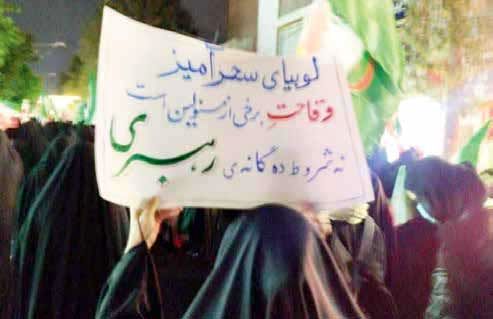 لوبیای سحرآمیز
وقاحتِ برخی از مسئولین است
نه شروط ده گانه‌ی رهبری